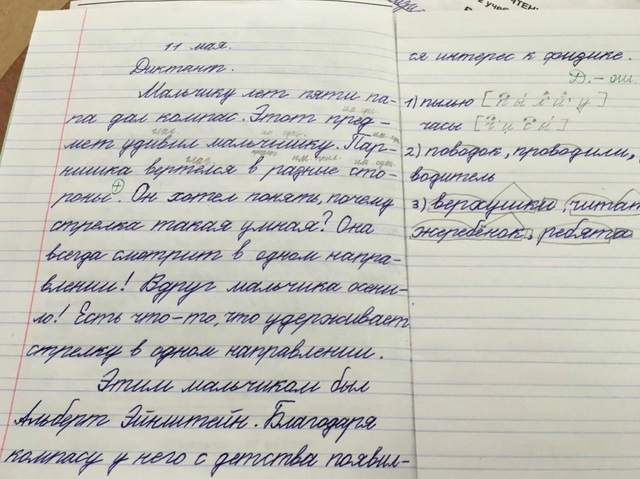 11 мая.
Диктант.
Мальчику лет пяти па-
па дал компас. Этот пред-
мет удивил мальчишку. Пар-
нишка вертелся в разные сто-
роны. Он хотел понять, почему
стрелка такая умная? Она
всегда смотрит в одном направ-
лении! Вдруг мальчика осени-
ло! Есть что-то, что удерживает
стрелку в одном направлении.
Этим мальчиком был
Альберт Эйнштейн. Благодаря
компасу у него с детства появил-
ся интерес к физике.
Д. – ош.
1) пылью [п ы л' й' у]
часы [ч' и с ы]
2) поводок, проводили,
водитель
3) верхушкю, читат
жеребёнок, ребята